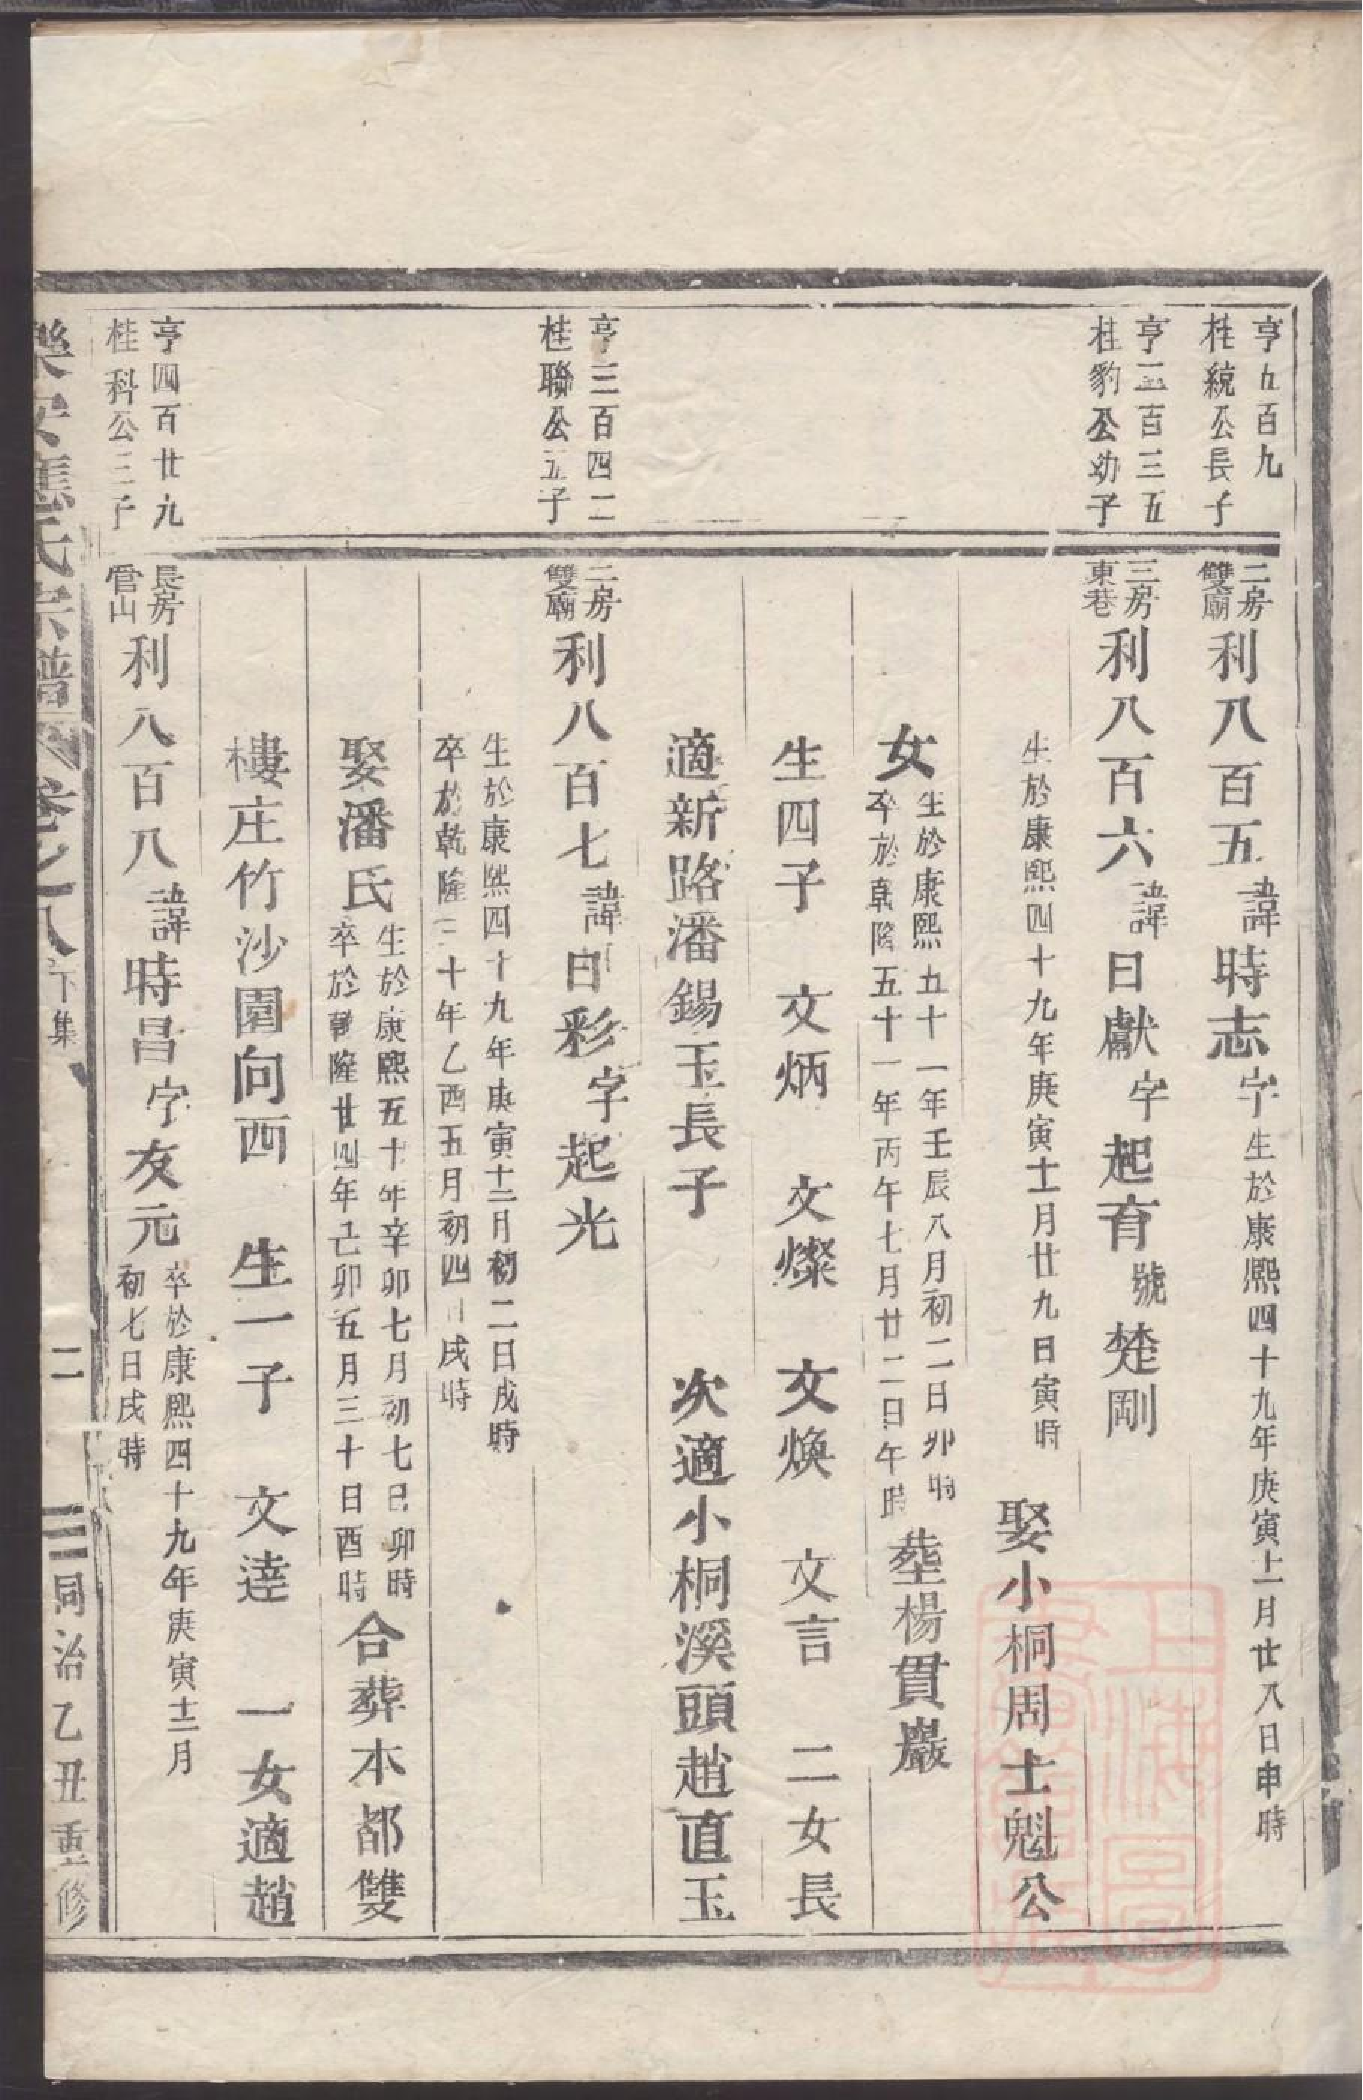 亨五百九
桂統公長子
二房
雙廟
利八百五諱時志字
生於康熙四十九年庚寅十一月廿八日申時
亨三百三五
桂豹公幼子
三房
東巷
利八百六諱曰獻字起育號楚剛
生於康熙四十九年庚寅十一月廿九日寅時
娶小桐周士魁公
女
生於康熙五十一年壬辰八月初二日卯時
卒於乾隆五十一年丙午七月廿二日午時
塟楊貫巖
生四子 文炳 文燦 文煥 文言 二女長
適新路潘錫玉長子 次適小桐溪頭趙直玉
亨三百四二
桂聯公五子
二房
雙廟
利八百七諱曰彩字起光
生於康熙四十九年庚寅十二月初二日戌時
卒於乾隆三十年乙酉五月初四日戌時
娶潘氏
生於康熙五十年辛卯七月初七日卯時
卒於乾隆廿四年己卯五月三十日酉時
合葬本都雙
樓庄竹沙園向西 生一子 文逹 一女適趙
亨四百廿九
桂科公三子
長房
官山
利八百八諱時昌字友元
卒於康熙四十九年庚寅十二月
初七日戌時
樂安應氏宗譜 卷之八 下集 二 同治乙丑重修
上海圖書館藏